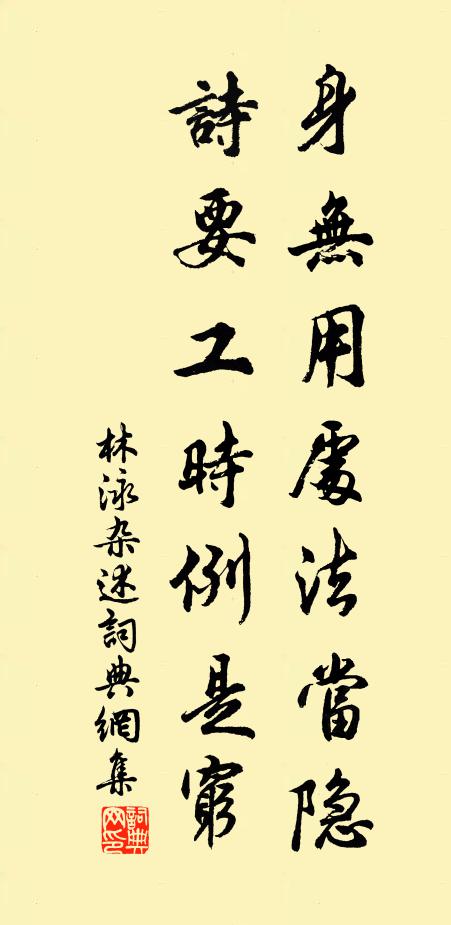 身無用處法當隐
詩要工時例是窮
林泳杂述詞典網集
詞典网印